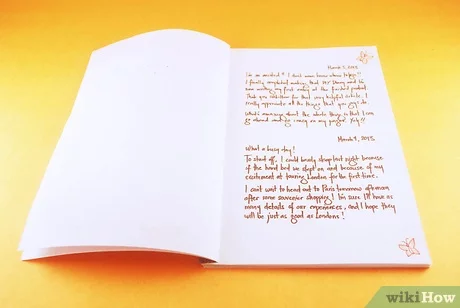 March 7, 2015
I'm so excited! I don't even know where to begin!!
I finally completed making that DIY Diary and I'm
now writing my first entry at the finished product.
Thank you wikiHow for that very helpful article. I
really appreciate all the things that you guys do.
What's more about the whole thing is that I can
go abroad and go crazy on my pages. Yay!!
March 9, 2015
What a busy day!
To start off, I could barely sleep last night because
of the hard bed we slept on and because of my
excitement of touring London for the first time.
I can't wait to head out to Paris tomorrow afternoon
after some souvenir shopping! I'm sure I'll have as
many details of our experiences, and I hope they
will be just as good as London's!
wikiHow